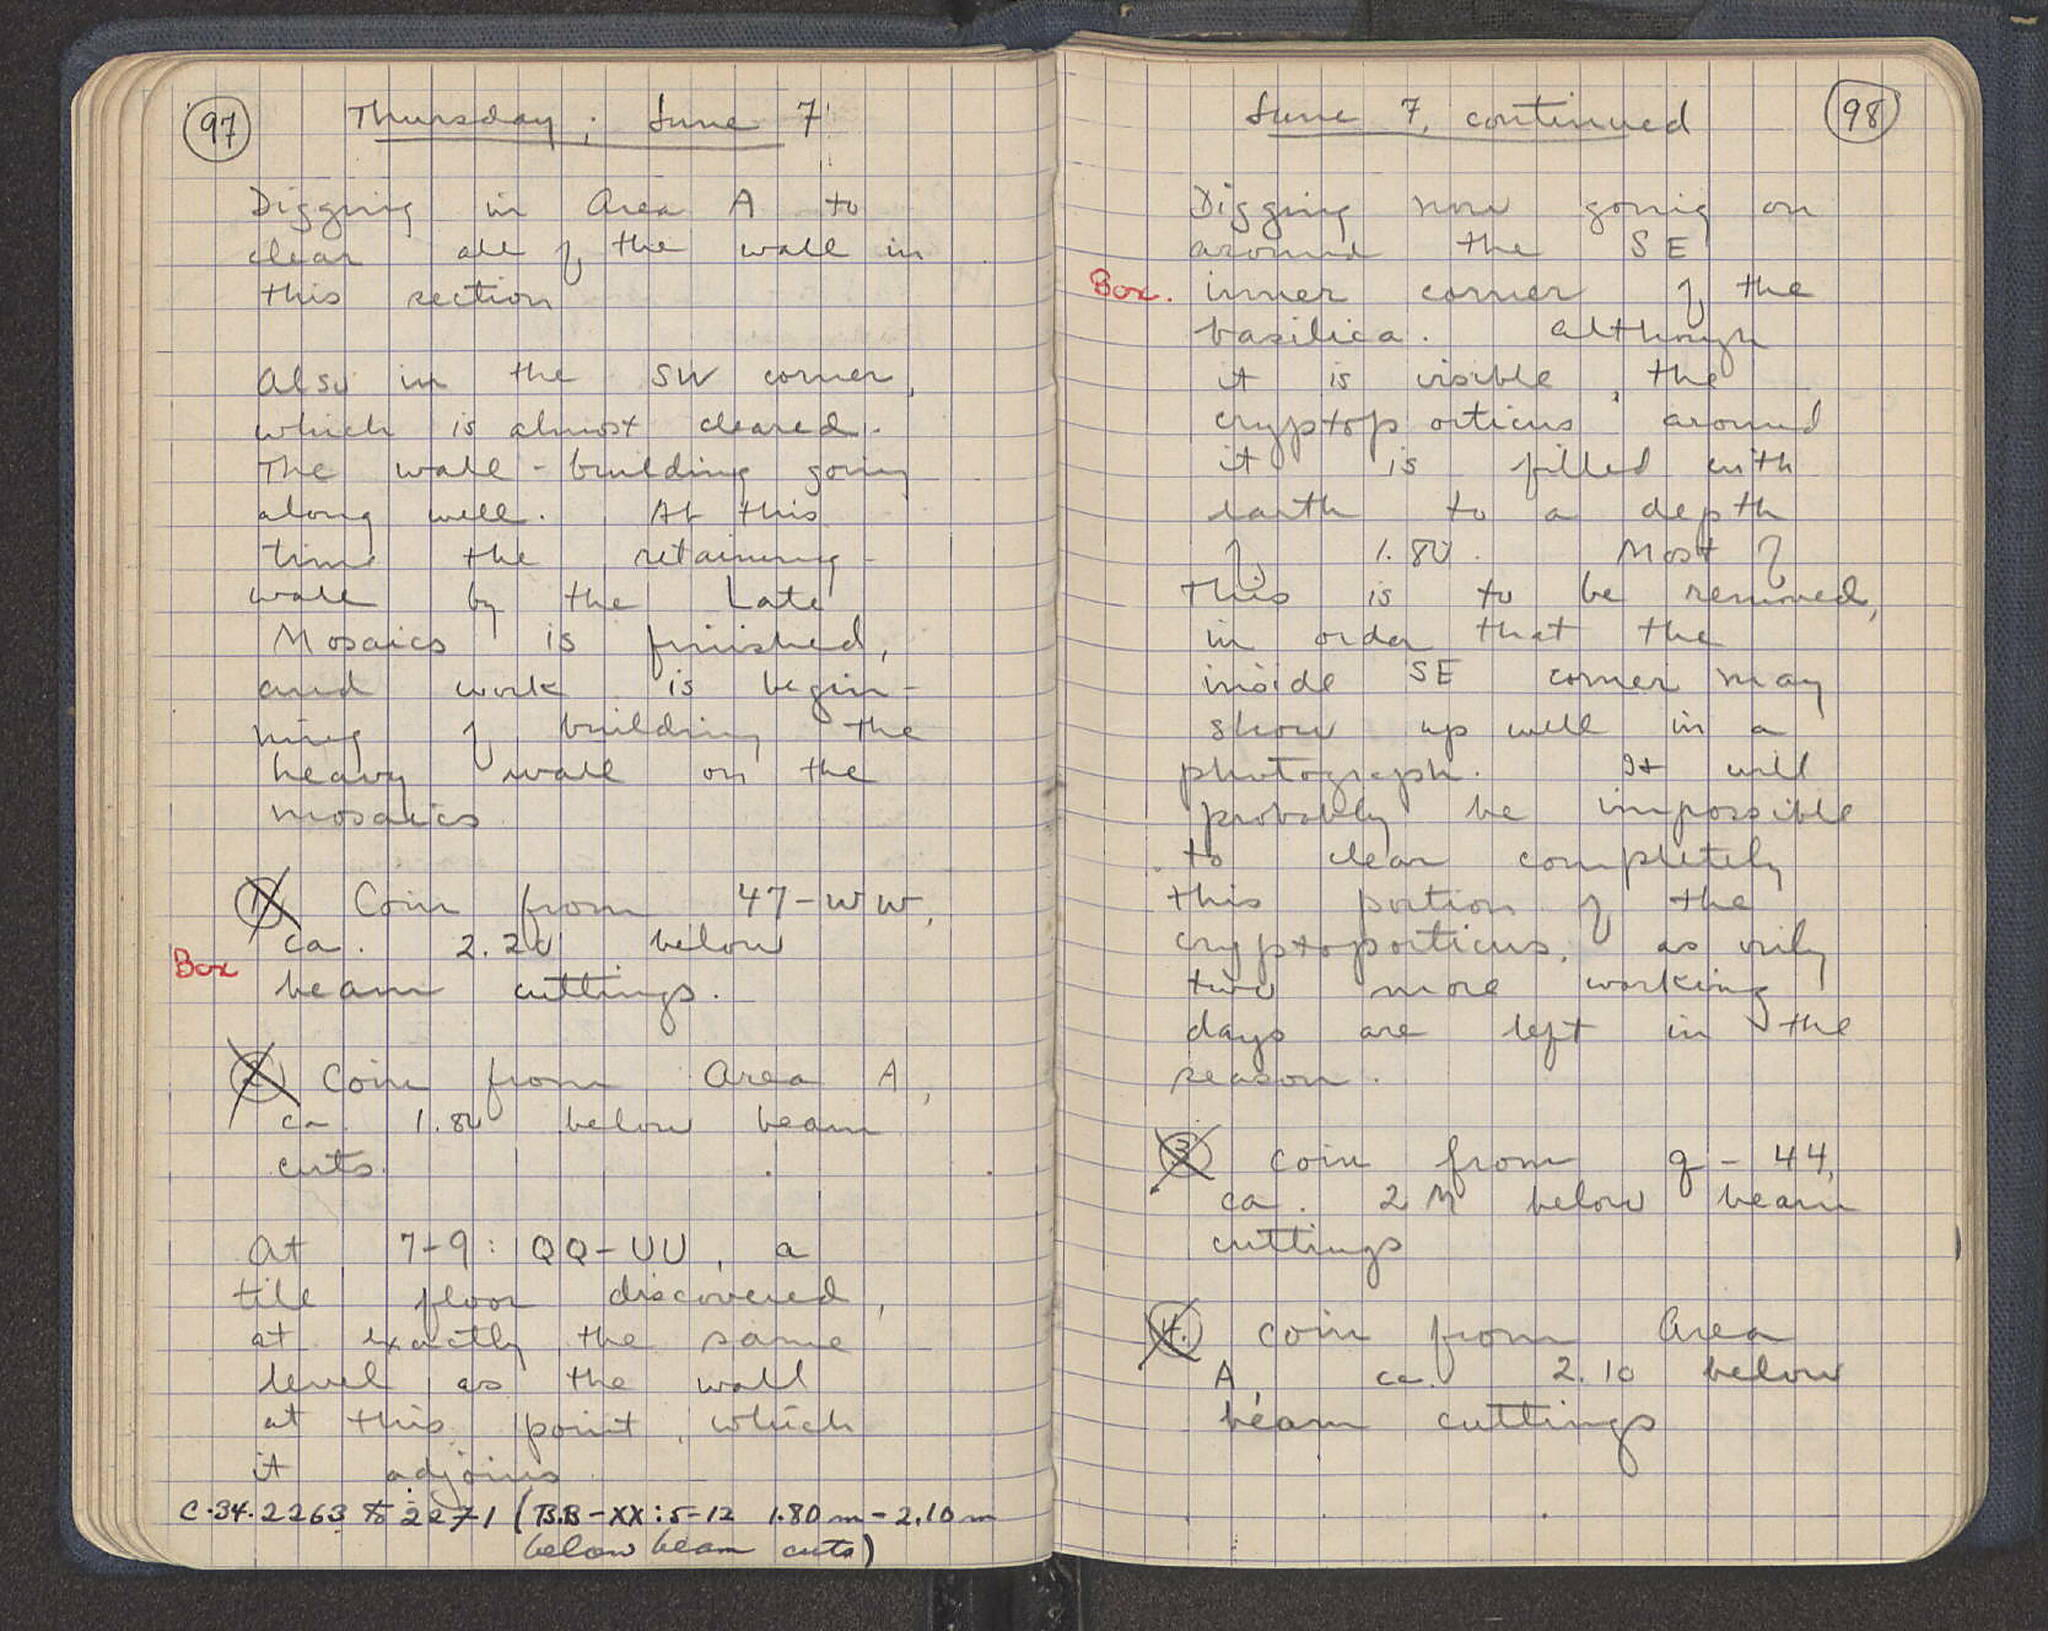 97
Thursday; June 7
Digging in Area A to
clear all of the wall in
this section
Also in the SW corner,
which is almost cleared.
The wall-building going
along well. At this
time the retaining-
wall by the Late
Mosaics is finished,
and work is begin-
ning of building the
heavy wall on the
mosaics
1 Coin from 47-WW,
ca. 2.20 below
Box
beam cuttings.
2 Coin from Area A,
ca. 1.80 below beam
cuts.
At 7-9: QQ-UU, a
tile floor discovered,
at exactly the same
level as the wall
at this point, which
it adjoins
C.34.2263 to 2271 (BB-XX:5-12 1.80m-2.10m
below beam cuts)
98
June 7, continued
Digging now going on
around the SE
Box. inner corner of the
basilica. Although
it is visible, the
cryptoporticus around
it is filled with
earth to a depth
of 1.80. Most of
This is to be removed,
in order that the
inside SE corner may
show up well in a
photograph. It will
probably be impossible
to clear completely
this portion of the
cryptoporticus, as only
two more working
days are left in the
season.
3 Coin from q-44,
ca. 2 M below beam
cuttings
4. Coin from Area
A, ca. 2.10 below
beam cuttings